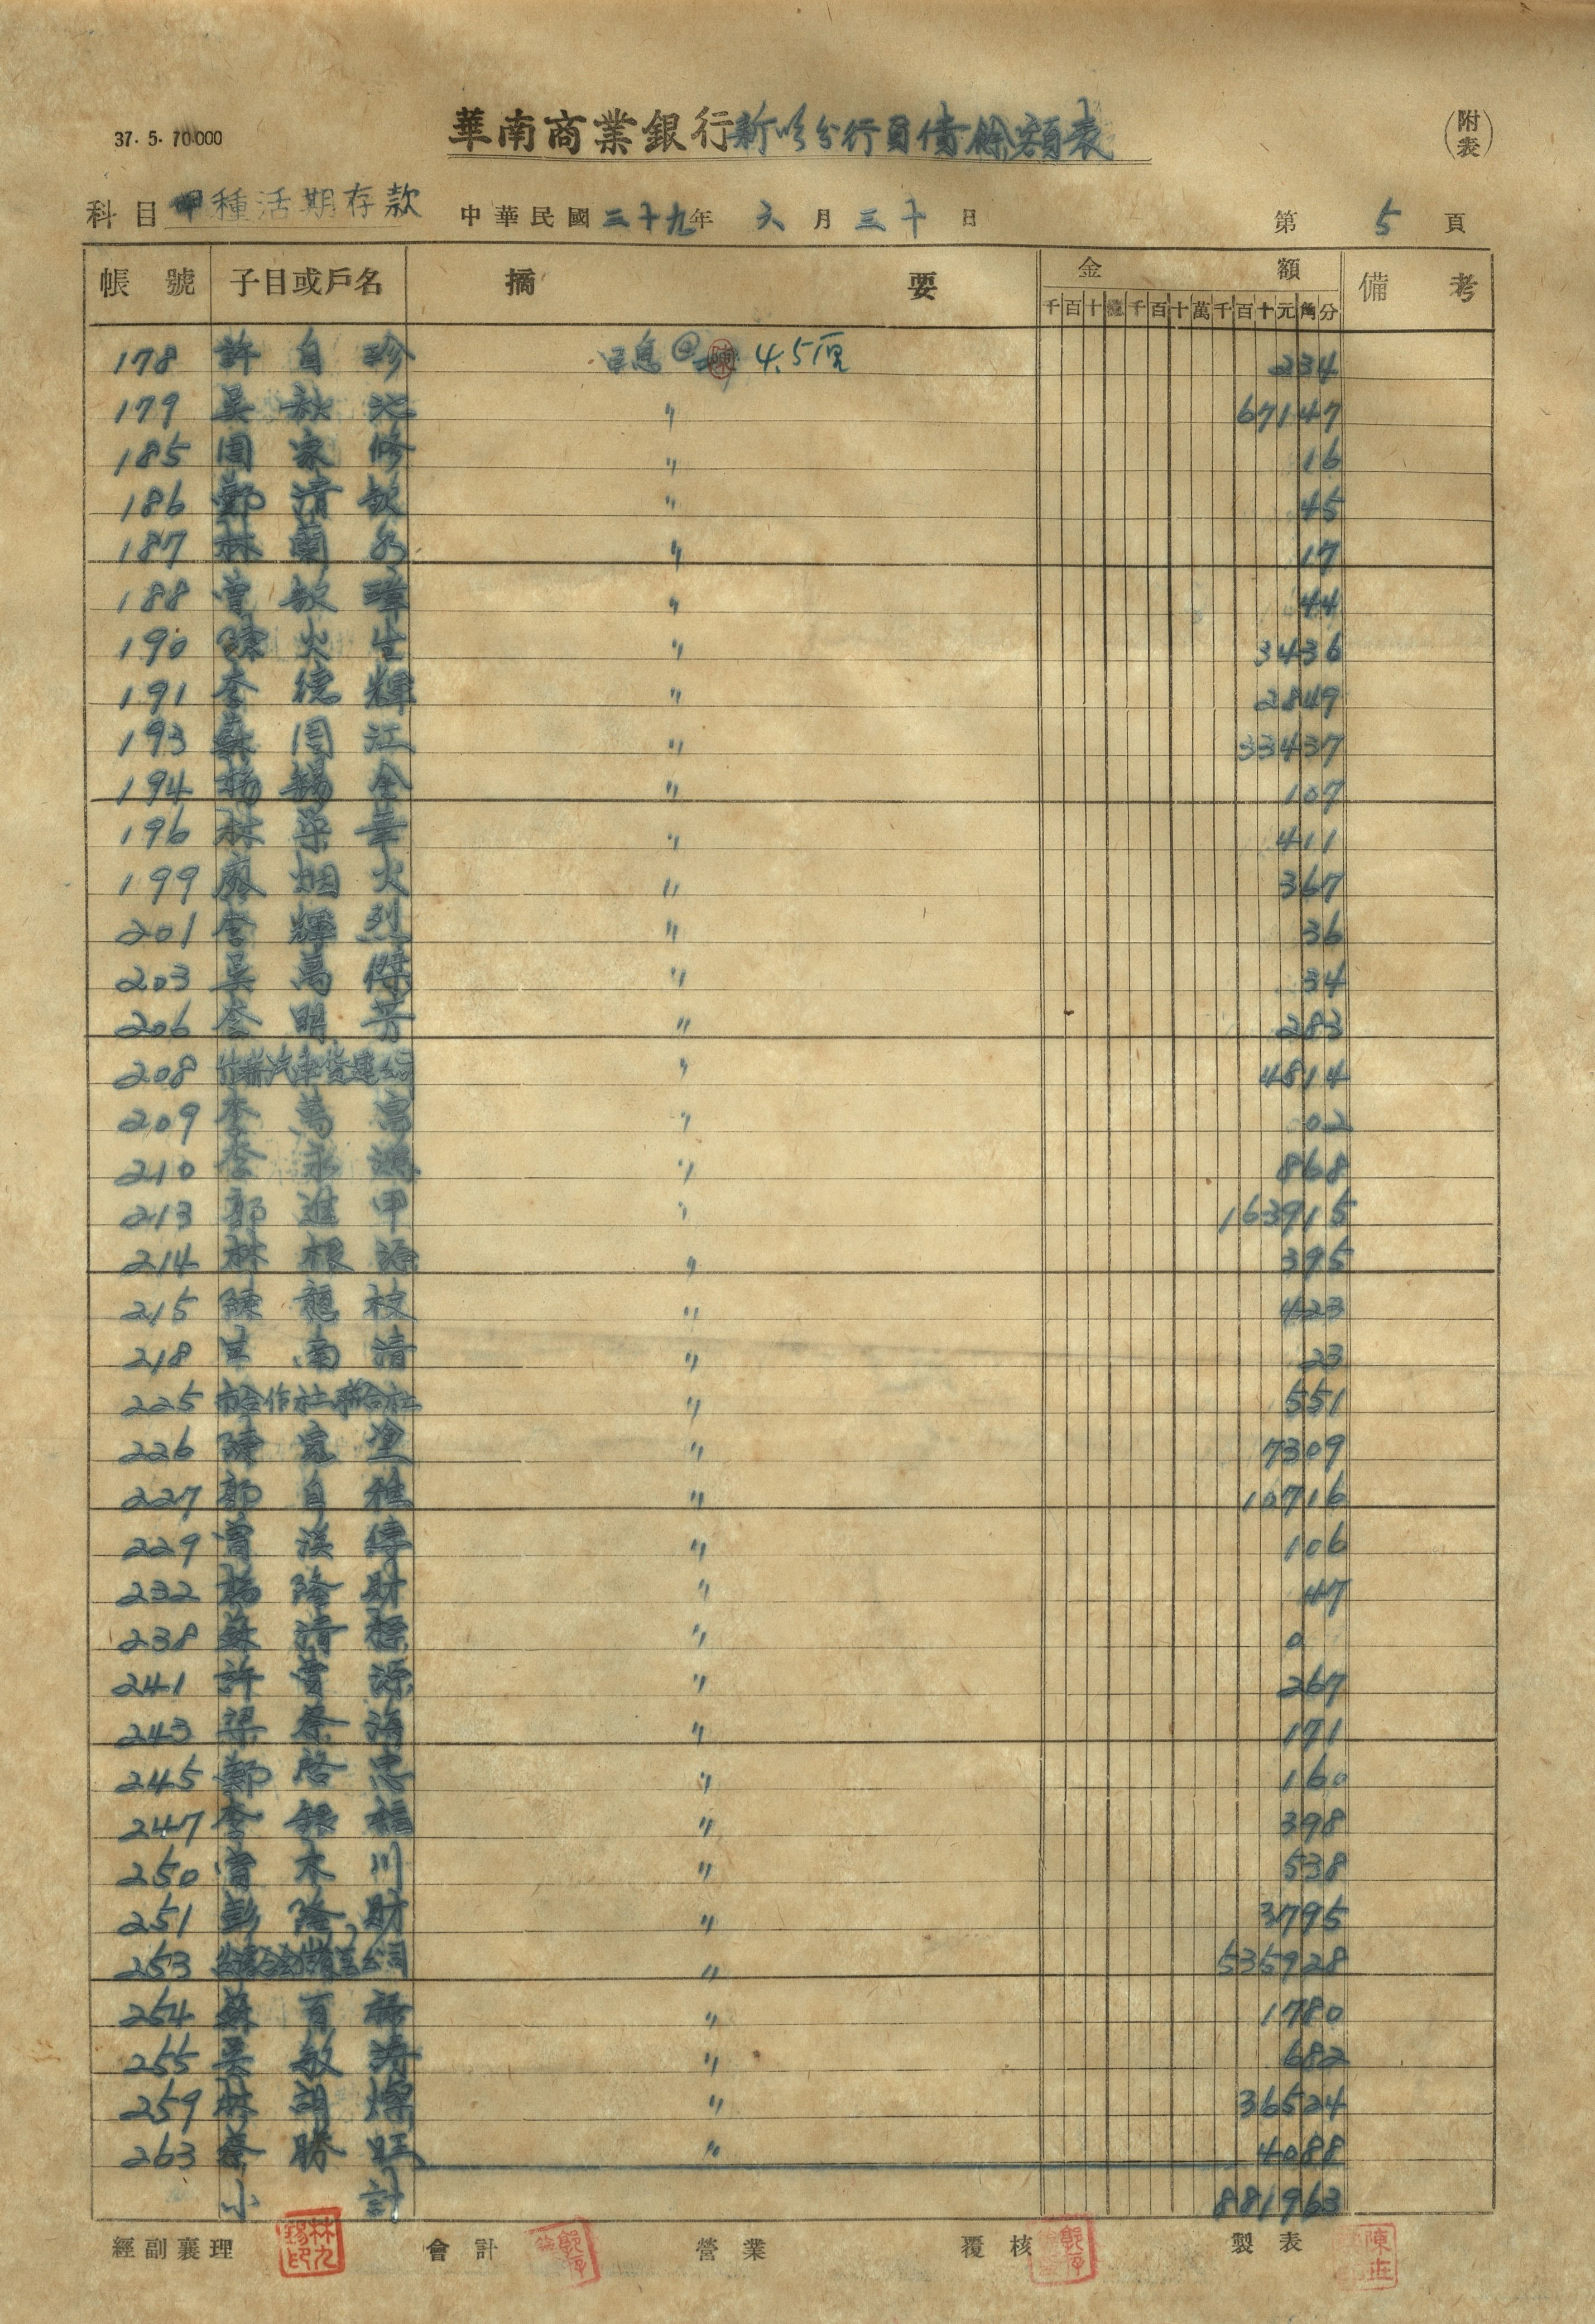 37. 5. 70.000
華南商業銀行新竹分行員債餘額表
(附表)
科目 甲種活期存款 中華民國三十九年 六月三十日 第5頁
帳號 子目或戶名 摘要 金額 備考
千百十億千百十萬千百十元角分
178 許自珍 日息@ 4.5厘 234
179 吳秋 〃 67147
185 周家修 〃 16
186 鄭清欽 〃 45
187 林蘭 〃 17
188 曾敏璋 〃 44
190 陳火生 〃 3436
191 李德輝 〃 2849
193 蘇周江 〃 33437
194 楊錫全 〃 107
196 林榮華 〃 411
199 廖烟火 〃 367
201 李輝烈 〃 36
203 吳萬傑 〃 34
206 李明芳 〃 283
208 竹新汽車貨運公司 〃 4814
209 李萬 〃 02
210 李永源 〃 868
213 郭進甲 〃 163915
214 林根源 〃 395
215 陳龍枝 〃 423
218 南清 〃 23
225 市合作社聯合社 〃 551
226 陳寬塗 〃 7309
227 郭自雄 〃 10716
229 曾溪 〃 106
232 楊隆財 〃 47
238 蘇清標 〃 0
241 許曾源 〃 267
243 梁蔡海 〃 171
245 鄭啓忠 〃 160
247 李銀福 〃 398
250 曾木川 〃 538
251 彭隆財 〃 3795
253 公司 〃 535928
254 蘇百 〃 1780
255 吳敏濤 〃 682
259 林胡燦 〃 36524
263 蔡勝旺 〃 4088
小計 881963
經副襄理 會計 營業 覆核 製表